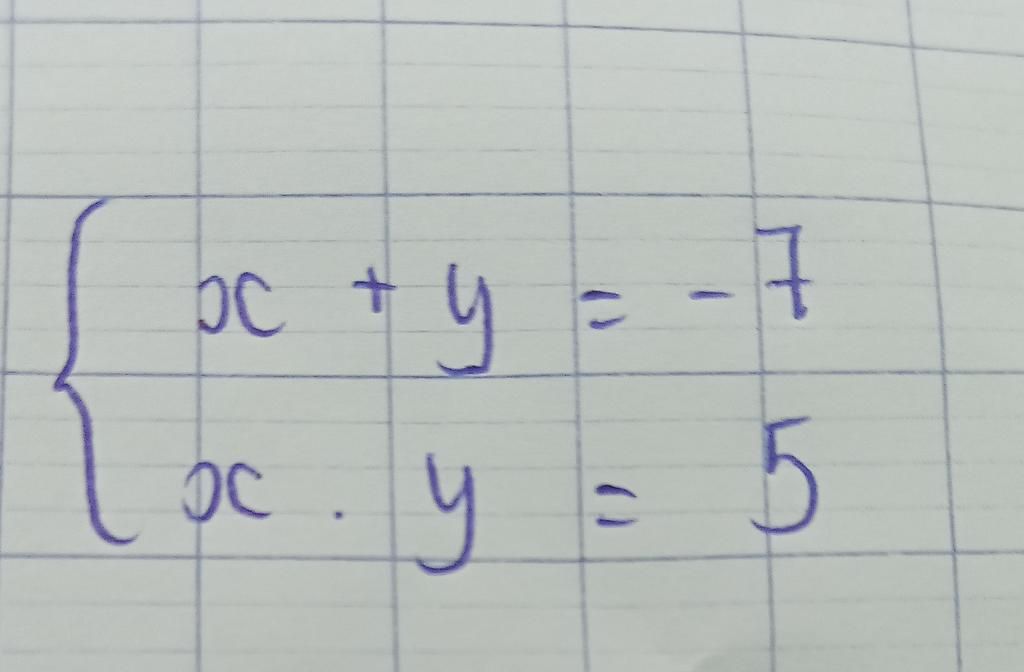 x + y = - 7
x . y = 5